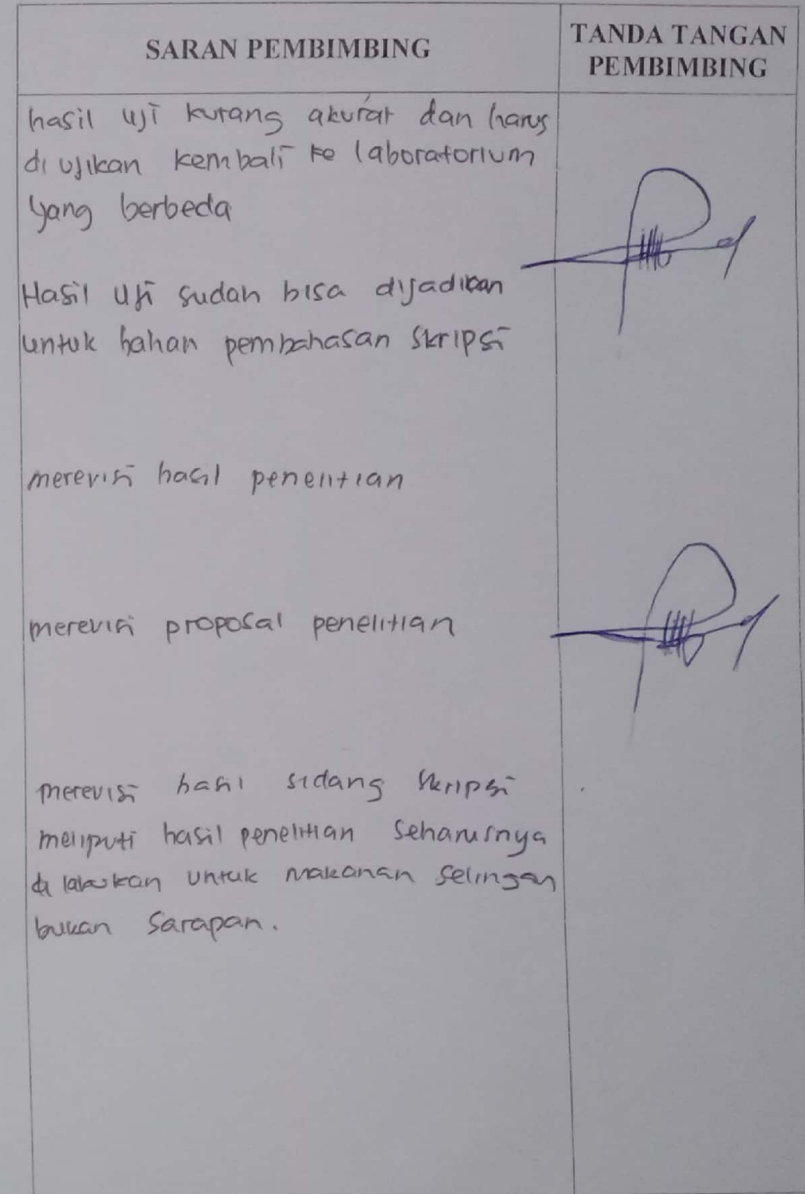 SARAN PEMBIMBING
TANDA TANGAN
PEMBIMBING
hasil uji kurang akurat dan harus
di ujikan kembali ke laboratorium
yang berbeda
Hasil uji sudah bisa dijadikan
untuk bahan pembahasan skripsi
merevisi hasil penelitian
merevisi proposal penelitian
merevisi hasil sidang skripsi
meliputi hasil penelitian seharusnya
di lakukan untuk makanan selingan
bukan sarapan.